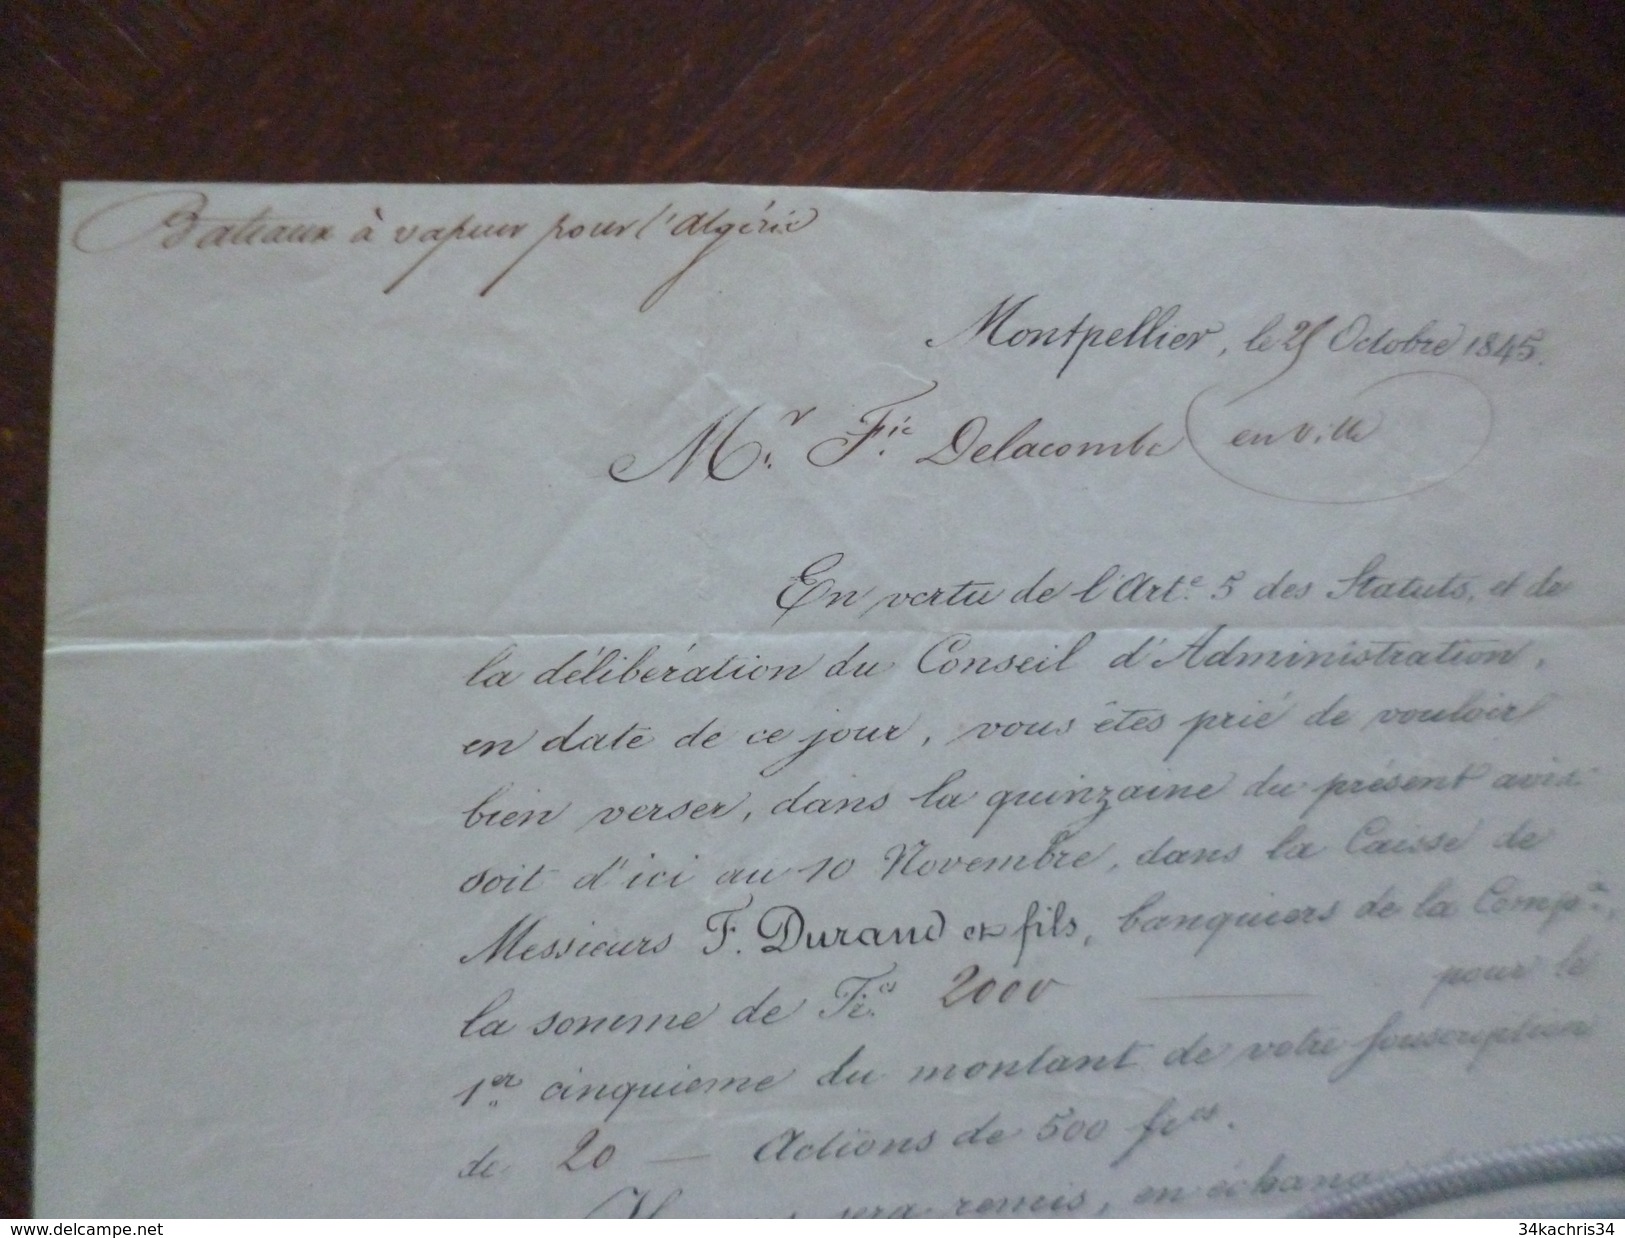 Bateaux à vapeur pour l'Algérie
Montpellier, le 25 Octobre 1845.
Mr. Fic. Delacombe en ville
En vertu de l'Arte. 5 des Statuts, et de
la délibération du Conseil d'Administration,
en date de ce jour, vous êtes prié de vouloir
bien verser, dans la quinzaine du présent avis
soit d'ici au 10 Novembre, dans la Caisse de
Messieurs F. Durand et fils, banquiers de la Compie.,
la somme de Fcs. 2000 — pour le
1er. cinquième du montant de votre souscription
de 20 — Actions de 500 fcs.
sera remis, en échange
www.delcampe.net
34kachris34